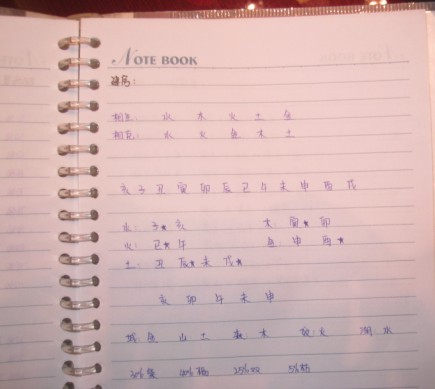 NOTE BOOK
相生: 水 木 火 土 金
相克: 水 火 金 木 土
亥 子 丑 寅 卯 辰 巳 午 未 申 酉 戌
水: 子★ 亥 木: 寅★ 卯
火: 巳★ 午 金: 申 酉★
土: 丑 辰★ 未 戌★
亥 卯 午 未 申
城 金 山 土 森 木 火 湖 水
30% 40% 25% 5%